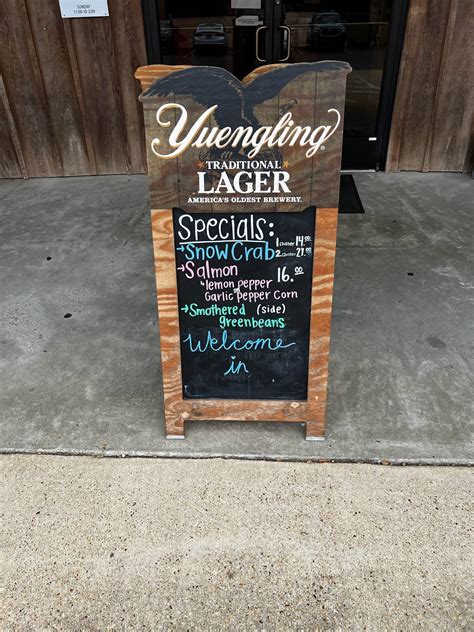 SUNDAY
11:00 @ 2:00
Yuengling®
TRADITIONAL
LAGER
AMERICA'S OLDEST BREWERY.
Specials:
→Snow Crab 1 cluster 14.00
2 cluster 27.00
→Salmon 16.00
↳lemon pepper
or
Garlic pepper Corn
→Smothered (side)
greenbeans
Welcome
in